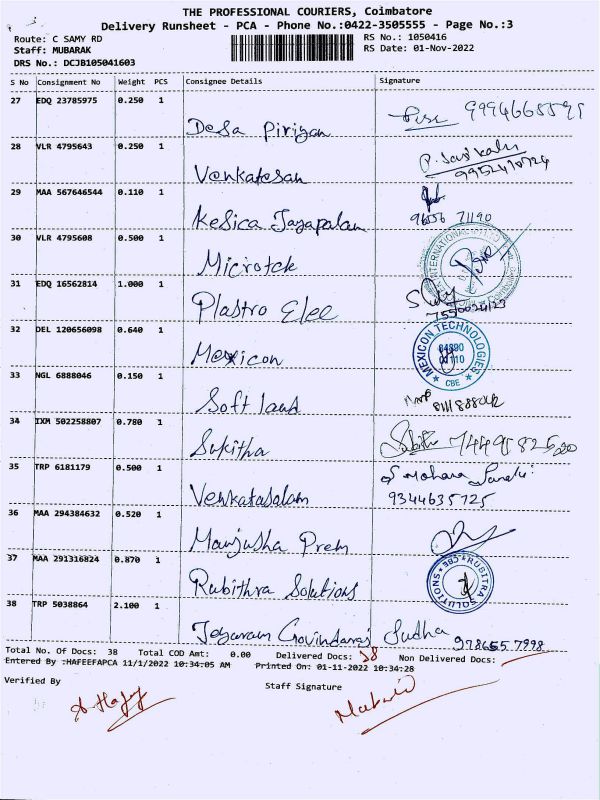 THE PROFESSIONAL COURIERS, Coimbatore
Delivery Runsheet - PCA - Phone No.:0422-3505555 - Page No.:3
Route: C SAMY RD RS No.: 1050416
Staff: MUBARAK RS Date: 01-Nov-2022
DRS No.: DCJB105041603
S No Consignment No Weight PCS Consignee Details Signature
27 EDQ 23785975 0.250 1
Desa Piriyan
28 VLR 4795643 0.250 1
Venkatesan
29 MAA 567646544 0.110 1
Kesica Jayapalan 96556 71190
30 VLR 4795608 0.500 1
Microtek
31 EDQ 16562814 1.000 1
Plastro Elec
32 DEL 120656098 0.640 1
Mexicon MEXICON TECHNOLOGIES CBE
33 NGL 6888046 0.150 1
Soft land
34 IXM 502258807 0.780 1
Sukitha
35 TRP 6181179 0.500 1
Venkatasalam 9344635725
36 MAA 294384632 0.520 1
Manjusha Prem
37 MAA 291316824 0.870 1
Rubithra Solutions RUBITRA SOLUTIONS CBE
38 TRP 5038864 2.100 1
Jeyaram Govindaraj Sudha 978655 7998
Total No. Of Docs: 38 Total COD Amt: 0.00 Delivered Docs: 38 Non Delivered Docs:
Entered By :HAFEEFAPCA 11/1/2022 10:34:05 AM Printed On: 01-11-2022 10:34:28
Verified By Staff Signature